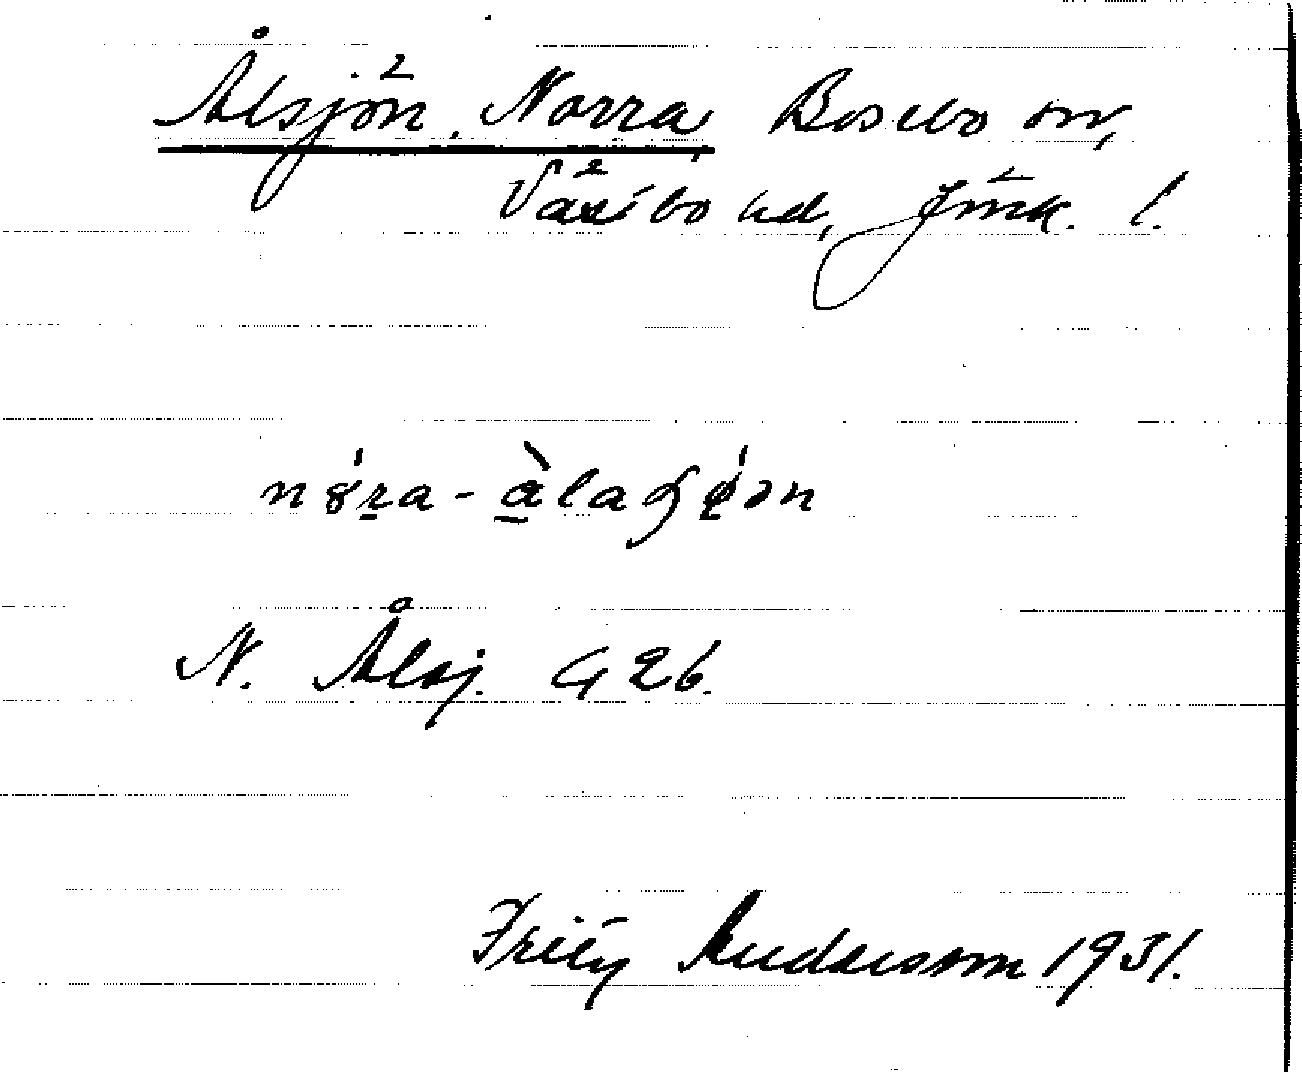 Ålsjön, Norra, Bosebo sn,
Västbo hd, Jönk. l.
nọ́ra - àlaʃɟǿən
N. Ålsj. G 26.
Fritz Andersson 1931.